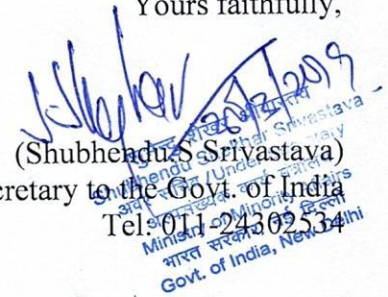 Yours faithfully,
20/3/2019
(Shubhendu.S Srivastava)
cretary to the Govt. of India
Tel: 011-24302534
Shubhendu Shekhar Srivastava
अवर सचिव/Under Secretary
अल्पसंख्यक कार्य मंत्रालय
Ministry of Minority Affairs
भारत सरकार, नई दिल्ली
Govt. of India, New Delhi